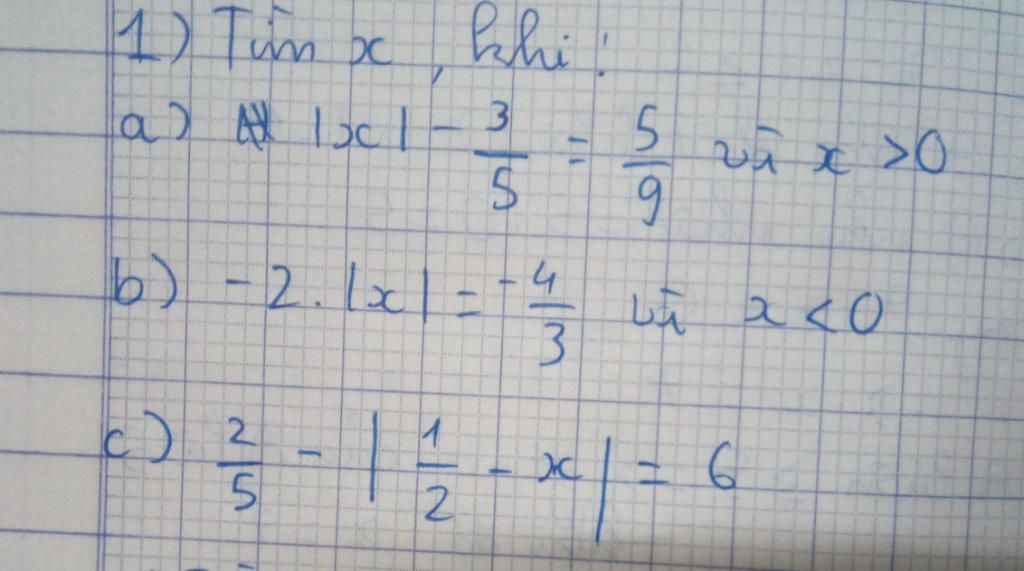 1) Tìm x, khi:
a) |x| - 3/5 = 5/9 và x > 0
b) -2. |x| = -4/3 và x < 0
c) 2/5 - | 1/2 - x | = 6